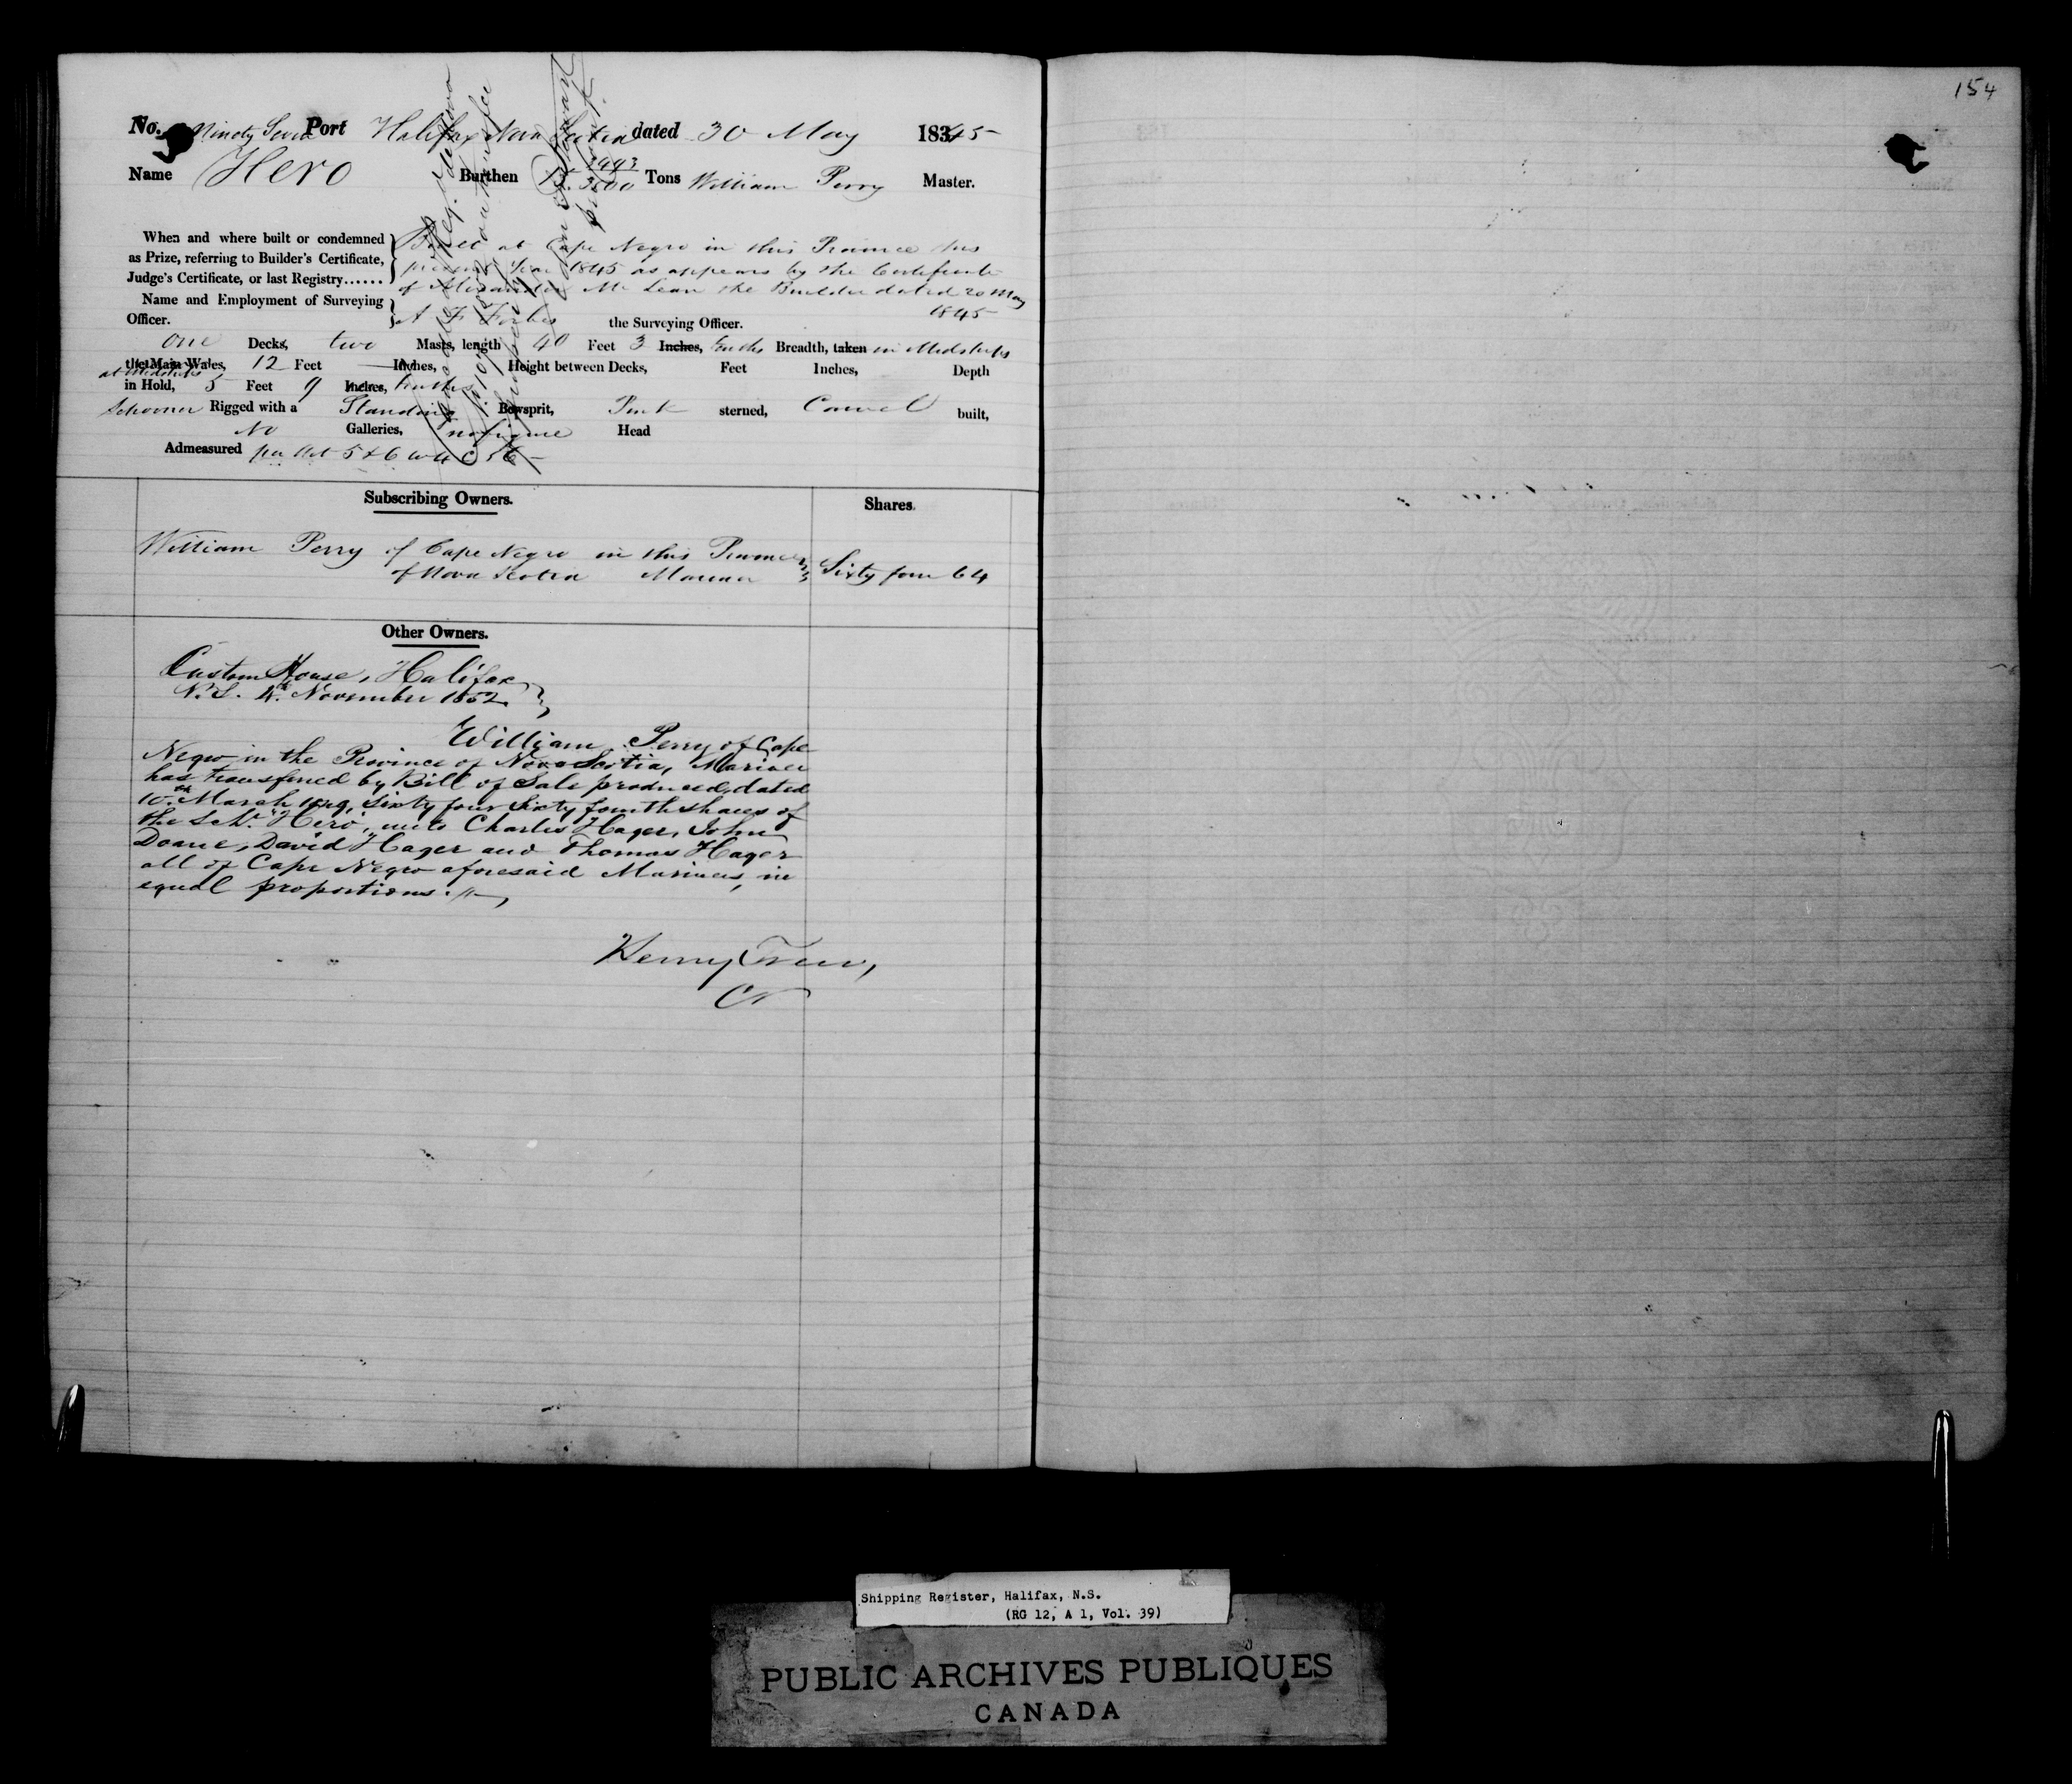 154
No. Ninety Seven Port Halifax Nova Scotia dated 30 May 1845
Name Hero Burthen 2993/3500 Tons William Perry Master.
When and where built or condemned as Prize, referring to Builder's Certificate, Judge's Certificate, or last Registry......
Built at Cape Negro in this Province this
present Year 1845 as appears by the Certificate
of Alexander Mc Lean the Builder dated 20 May
1845
Name and Employment of Surveying Officer.
A F Forbes the Surveying Officer.
One Decks, two Masts, length 40 Feet 3 Inches, tenths Breadth, taken in Midships
the Main Wales, 12 Feet — Inches, Height between Decks, Feet Inches, Depth
at Midships
in Hold, 5 Feet 9 Inches, tenths
Schooner Rigged with a Standing Bowsprit, Pink sterned, Carvel built,
No Galleries, no figure Head
Admeasured per Act 5 & 6 Will C 56
Subscribing Owners. Shares.
William Perry of Cape Negro in this Province
of Nova Scotia Mariner Sixty four 64
Other Owners.
Custom House, Halifax
N.S. 4th November 1852
William Perry of Cape
Negro in the Province of Nova Scotia, Mariner
has transferred by Bill of Sale produced, dated
10th March 1849, Sixty four Sixty fourth shares of
the Schr. "Hero", unto Charles Hager, John
Doane, David Hager and Thomas Hager
all of Cape Negro aforesaid Mariners, in
equal proportions.
Henry
Shipping Register, Halifax, N.S.
(RG 12, A 1, Vol. 39)
PUBLIC ARCHIVES PUBLIQUES
CANADA